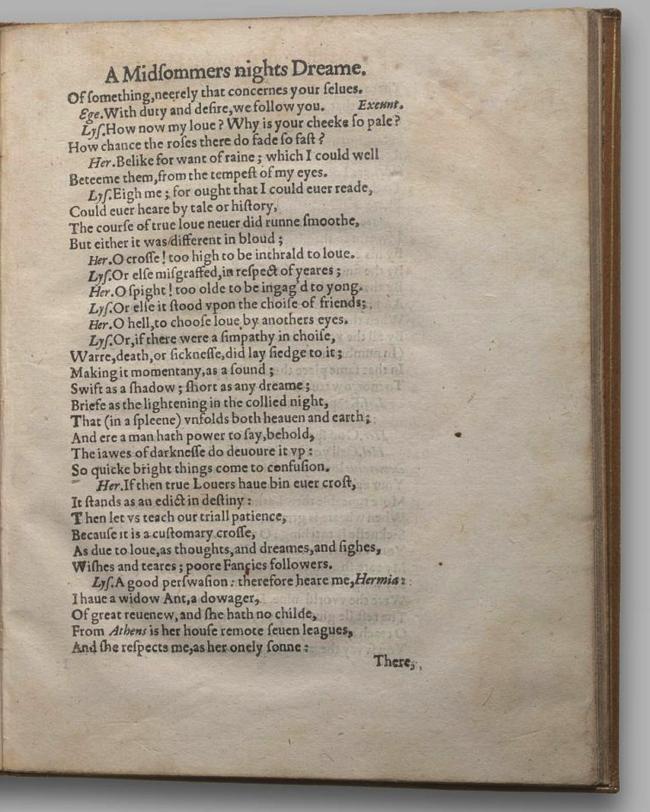 A Midſommers nights Dreame.
Of ſomething, neerely that concernes your ſelues.
Ege. With duty and deſire, we follow you. Exeunt.
Lyſ. How now my loue? Why is your cheeke ſo pale?
How chance the roſes there do fade ſo faſt?
Her. Belike for want of raine; which I could well
Beteeme them, from the tempeſt of my eyes.
Lyſ. Eigh me; for ought that I could euer reade,
Could euer heare by tale or hiſtory,
The courſe of true loue neuer did runne ſmoothe,
But either it was different in bloud;
Her. O croſſe! too high to be inthrald to loue.
Lyſ. Or elſe miſgraffed, in reſpect of yeares;
Her. O ſpight! too olde to be ingag'd to yong.
Lyſ. Or elſe it ſtood vpon the choiſe of friends;
Her. O hell, to chooſe loue by anothers eyes.
Lyſ. Or, if there were a ſimpathy in choiſe,
Warre, death, or ſickneſſe, did lay ſiedge to it;
Making it momentany, as a ſound;
Swift as a ſhadow; ſhort as any dreame;
Briefe as the lightening in the collied night,
That (in a ſpleene) vnfolds both heauen and earth;
And ere a man hath power to ſay, behold,
The iawes of darkneſſe do deuoure it vp:
So quicke bright things come to confuſion.
Her. If then true Louers haue bin euer croſt,
It ſtands as an edict in deſtiny:
Then let vs teach our triall patience,
Becauſe it is a cuſtomary croſſe,
As due to loue, as thoughts, and dreames, and ſighes,
Wiſhes and teares; poore Fancies followers.
Lyſ. A good perſwaſion: therefore heare me, Hermia:
I haue a widow Ant, a dowager,
Of great reuenew, and ſhe hath no childe,
From Athens is her houſe remote ſeuen leagues,
And ſhe reſpects me, as her onely ſonne:
There,